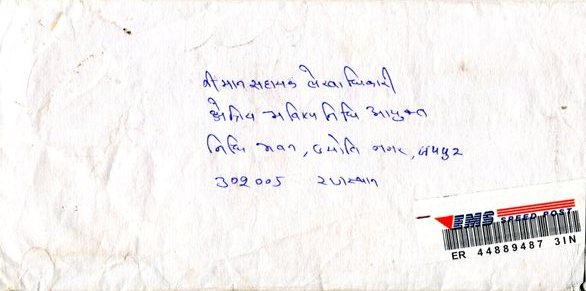 શ્રીમાન સહાયક લેખાધિકારી
ક્ષેત્રિય ભવિષ્ય નિધિ આયુક્ત
નિધિ ભવન, જ્યોતિ નગર, જયપુર
302005 રાજસ્થાન
EMS SPEED POST
ER 44889487 3IN